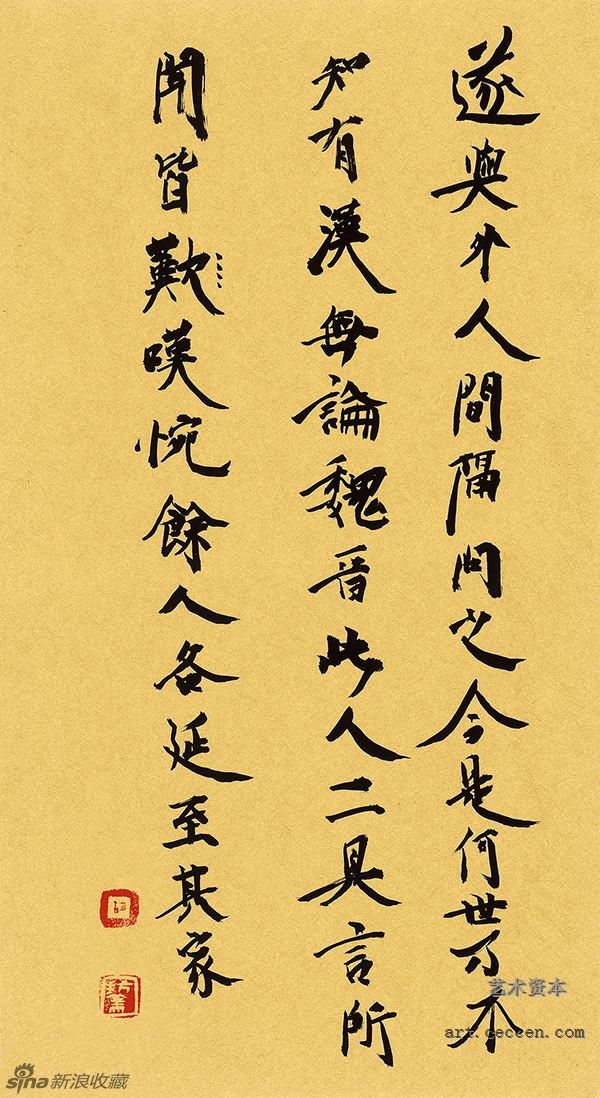 遂與外人間隔問之今是何世乃不
知有漢無論魏晉此人二具言所
聞皆歎嘆惋餘人各延至其家
艺术资本
art.ceccen.com
sina新浪收藏